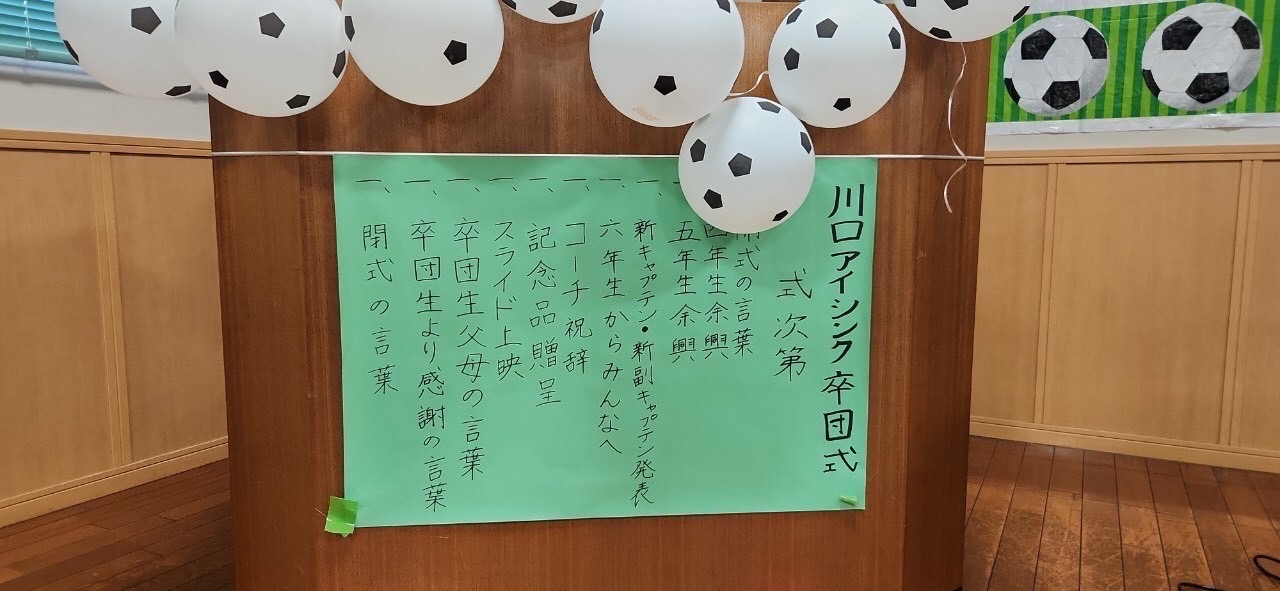 川口アイシンク卒団式
式次第
開式の言葉
一、四年生余興
一、五年生余興
一、新キャプテン・新副キャプテン発表
一、六年生からみんなへ
一、コーチ祝辞
一、記念品贈呈
一、スライド上映
一、卒団生父母の言葉
一、卒団生より、感謝の言葉
一、閉式の言葉